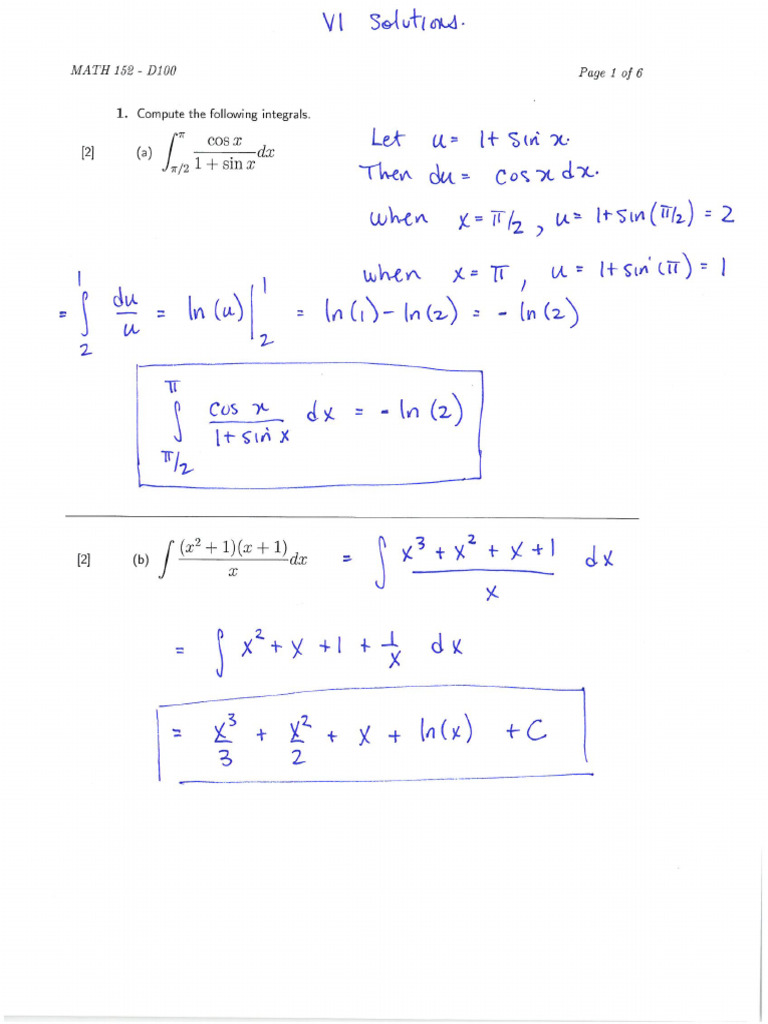 V1 Solutions.
MATH 152 - D100 Page 1 of 6
1. Compute the following integrals.
[2] (a) ∫_{π/2}^{π} cos x / (1 + sin x) dx
Let u = 1 + sin x.
Then du = cos x dx.
when x = π/2, u = 1 + sin(π/2) = 2
when x = π, u = 1 + sin(π) = 1
= ∫_2^1 du/u = ln(u)|_2^1 = ln(1) - ln(2) = - ln(2)
∫_{π/2}^{π} cos x / (1 + sin x) dx = - ln(2)
[2] (b) ∫ (x² + 1)(x + 1) / x dx = ∫ (x³ + x² + x + 1) / x dx
= ∫ x² + x + 1 + 1/x dx
= x³/3 + x²/2 + x + ln(x) + C